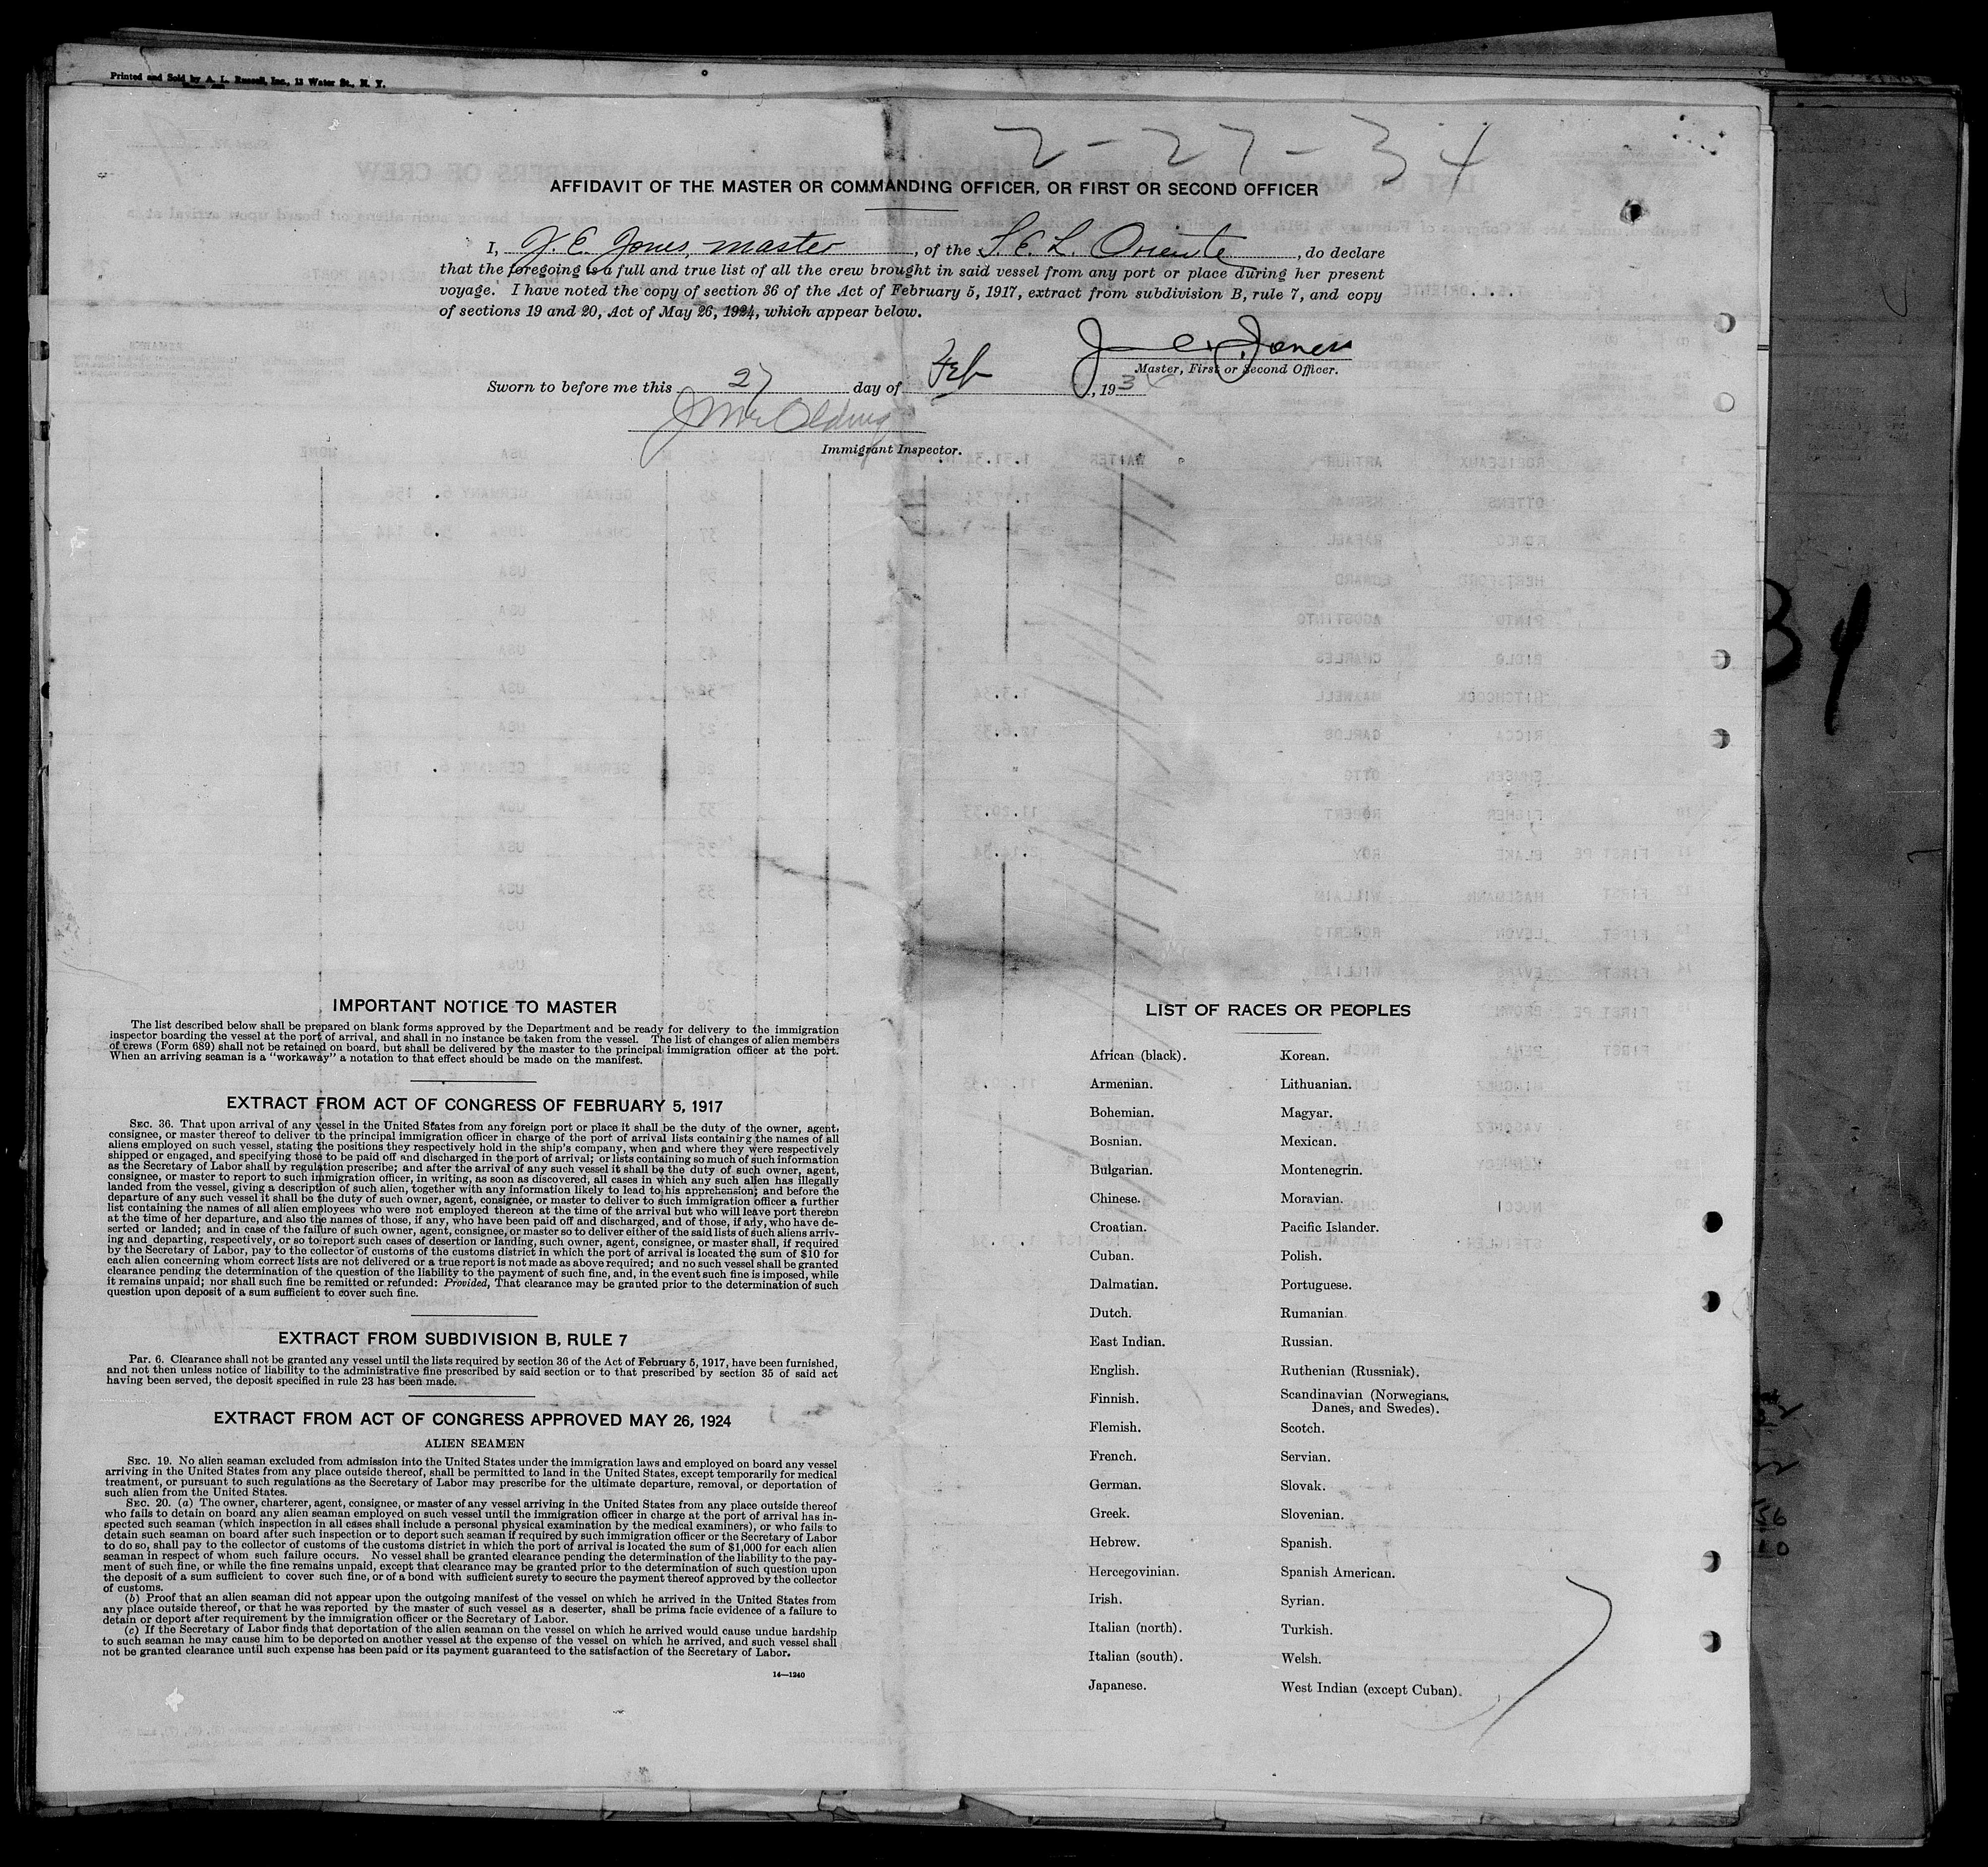 Printed and Sold by A. L. Russell, Inc., 13 Water St., N. Y.
2-27-34
AFFIDAVIT OF THE MASTER OR COMMANDING OFFICER, OR FIRST OR SECOND OFFICER
I, J. E. Jones, master, of the Oriente, do declare
that the foregoing is a full and true list of all the crew brought in said vessel from any port or place during her present
voyage. I have noted the copy of section 36 of the Act of February 5, 1917, extract from subdivision B, rule 7, and copy
of sections 19 and 20, Act of May 26, 1924, which appear below.
J. E. Jones
Master, First or Second Officer.
Sworn to before me this 27 day of Feb, 1934
Immigrant Inspector.
34
IMPORTANT NOTICE TO MASTER
The list described below shall be prepared on blank forms approved by the Department and be ready for delivery to the immigration
inspector boarding the vessel at the port of arrival, and shall in no instance be taken from the vessel. The list of changes of alien members
of crews (Form 689) shall not be retained on board, but shall be delivered by the master to the principal immigration officer at the port.
When an arriving seaman is a "workaway" a notation to that effect should be made on the manifest.
EXTRACT FROM ACT OF CONGRESS OF FEBRUARY 5, 1917
SEC. 36. That upon arrival of any vessel in the United States from any foreign port or place it shall be the duty of the owner, agent,
consignee, or master thereof to deliver to the principal immigration officer in charge of the port of arrival lists containing the names of all
aliens employed on such vessel, stating the positions they respectively hold in the ship's company, when and where they were respectively
shipped or engaged, and specifying those to be paid off and discharged in the port of arrival; or lists containing so much of such information
as the Secretary of Labor shall by regulation prescribe; and after the arrival of any such vessel it shall be the duty of such owner, agent,
consignee, or master to report to such immigration officer, in writing, as soon as discovered, all cases in which any such alien has illegally
landed from the vessel, giving a description of such alien, together with any information likely to lead to his apprehension; and before the
departure of any such vessel it shall be the duty of such owner, agent, consignee, or master to deliver to such immigration officer a further
list containing the names of all alien employees who were not employed thereon at the time of the arrival but who will leave port thereon
at the time of her departure, and also the names of those, if any, who have been paid off and discharged, and of those, if any, who have de-
serted or landed; and in case of the failure of such owner, agent, consignee, or master so to deliver either of the said lists of such aliens arriv-
ing and departing, respectively, or so to report such cases of desertion or landing, such owner, agent, consignee, or master shall, if required
by the Secretary of Labor, pay to the collector of customs of the customs district in which the port of arrival is located the sum of $10 for
each alien concerning whom correct lists are not delivered or a true report is not made as above required; and no such vessel shall be granted
clearance pending the determination of the question of the liability to the payment of such fine, and, in the event such fine is imposed, while
it remains unpaid; nor shall such fine be remitted or refunded: Provided, That clearance may be granted prior to the determination of such
question upon deposit of a sum sufficient to cover such fine.
EXTRACT FROM SUBDIVISION B, RULE 7
Par. 6. Clearance shall not be granted any vessel until the lists required by section 36 of the Act of February 5, 1917, have been furnished,
and not then unless notice of liability to the administrative fine prescribed by said section or to that prescribed by section 35 of said act
having been served, the deposit specified in rule 23 has been made.
EXTRACT FROM ACT OF CONGRESS APPROVED MAY 26, 1924
ALIEN SEAMEN
SEC. 19. No alien seaman excluded from admission into the United States under the immigration laws and employed on board any vessel
arriving in the United States from any place outside thereof, shall be permitted to land in the United States, except temporarily for medical
treatment, or pursuant to such regulations as the Secretary of Labor may prescribe for the ultimate departure, removal, or deportation of
such alien from the United States.
SEC. 20. (a) The owner, charterer, agent, consignee, or master of any vessel arriving in the United States from any place outside thereof
who fails to detain on board any alien seaman employed on such vessel until the immigration officer in charge at the port of arrival has in-
spected such seaman (which inspection in all cases shall include a personal physical examination by the medical examiners), or who fails to
detain such seaman on board after such inspection or to deport such seaman if required by such immigration officer or the Secretary of Labor
to do so, shall pay to the collector of customs of the customs district in which the port of arrival is located the sum of $1,000 for each alien
seaman in respect of whom such failure occurs. No vessel shall be granted clearance pending the determination of the liability to the pay-
ment of such fine, or while the fine remains unpaid, except that clearance may be granted prior to the determination of such question upon
the deposit of a sum sufficient to cover such fine, or of a bond with sufficient surety to secure the payment thereof approved by the collector
of customs.
(b) Proof that an alien seaman did not appear upon the outgoing manifest of the vessel on which he arrived in the United States from
any place outside thereof, or that he was reported by the master of such vessel as a deserter, shall be prima facie evidence of a failure to
detain or deport after requirement by the immigration officer or the Secretary of Labor.
(c) If the Secretary of Labor finds that deportation of the alien seaman on the vessel on which he arrived would cause undue hardship
to such seaman he may cause him to be deported on another vessel at the expense of the vessel on which he arrived, and such vessel shall
not be granted clearance until such expense has been paid or its payment guaranteed to the satisfaction of the Secretary of Labor.
14—1240
LIST OF RACES OR PEOPLES
African (black). Korean.
Armenian. Lithuanian.
Bohemian. Magyar.
Bosnian. Mexican.
Bulgarian. Montenegrin.
Chinese. Moravian.
Croatian. Pacific Islander.
Cuban. Polish.
Dalmatian. Portuguese.
Dutch. Rumanian.
East Indian. Russian.
English. Ruthenian (Russniak).
Finnish. Scandinavian (Norwegians,
Danes, and Swedes).
Flemish. Scotch.
French. Servian.
German. Slovak.
Greek. Slovenian.
Hebrew. Spanish.
Hercegovinian. Spanish American.
Irish. Syrian.
Italian (north). Turkish.
Italian (south). Welsh.
Japanese. West Indian (except Cuban).